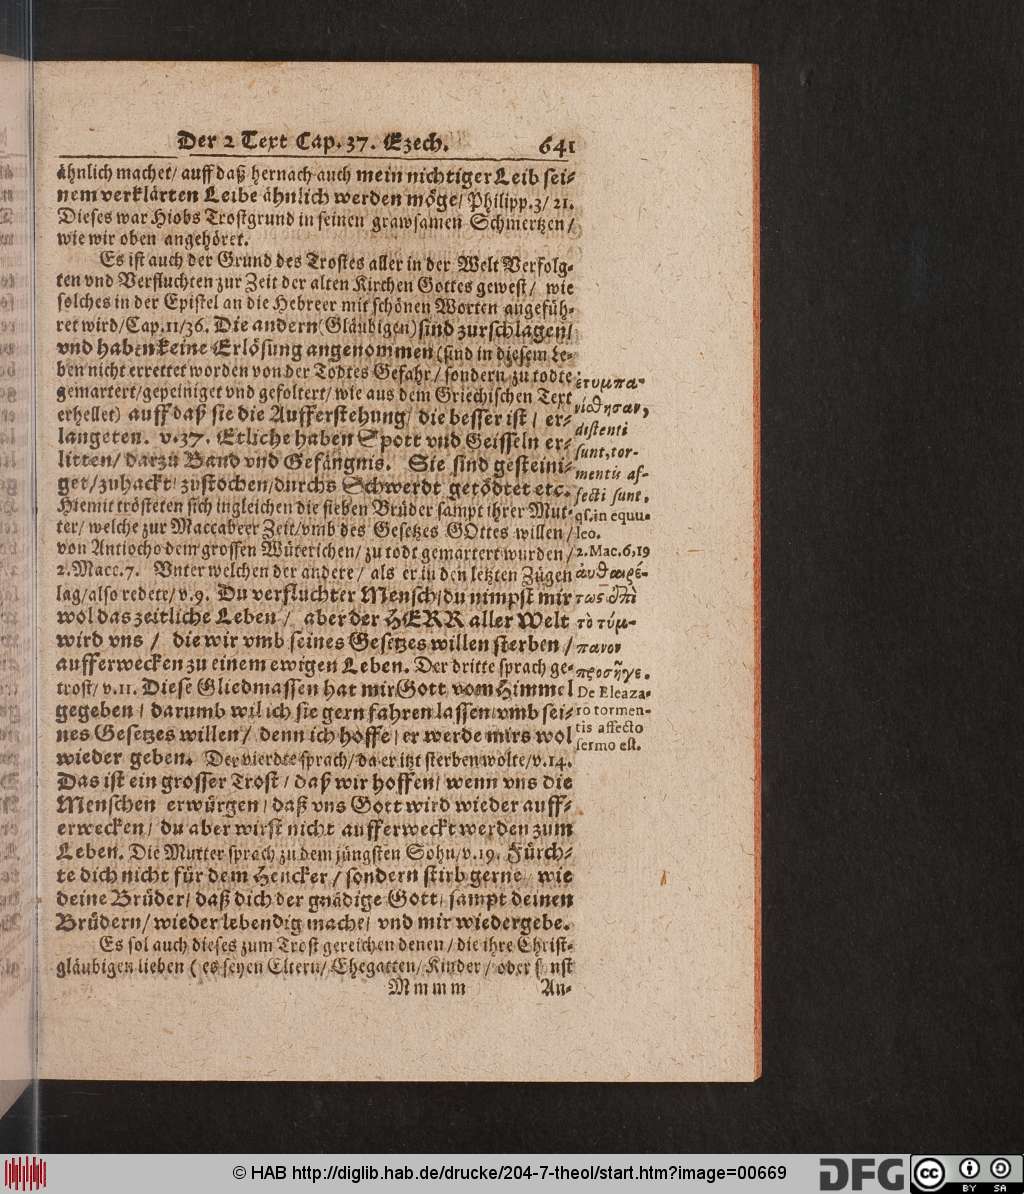 Der 2 Text Cap. 37. Ezech. 641
ähnlich machet/ auff daß hernach auch mein nichtiger Leib sei-
nem verklärten Leibe ähnlich werden möge/ Philipp. 3/ 21.
Dieses war Hiobs Trostgrund in seinen grawsamen Schmertzen/
wie wir oben angehöret.
Es ist auch der Grund des Trostes aller in der Welt Verfolg-
ten vnd Verfluchten zur Zeit der alten Kirchen Gottes gewest/ wie
solches in der Epistel an die Hebreer mit schönen Worten angefüh-
ret wird/ Cap. 11/36. Die andern (Gläubigen) sind zurschlagen/
vnd haben keine Erlösung angenommen (sind in diesem Le-
ben nicht errettet worden von der Todtes Gefahr/ sondern zu todte
gemartert/ gepeiniget vnd gefoltert/ wie aus dem Griechischen Text
erhellet) auff daß sie die Aufferstehung/ die besser ist/ er-
langeten. v. 37. Etliche haben Spott vnd Geisseln er-
litten/ darzu Band vnd Gefängnis. Sie sind gesteini-
get/ zuhackt/ zustochen/ durchs Schwerdt getödtet etc.
Hiemit trösteten sich ingleichen die sieben Brüder sampt ihrer Mut-
ter/ welche zur Maccabeer Zeit/ vmb des Gesetzes GOttes willen/
von Antiocho dem grossen Wüterichen/ zu todt gemartert wurden/
2. Macc. 7. Vnter welchen der andere/ als er in den letzten Zügen
lag/ also redete/ v. 9. Du verfluchter Mensch/ du nimpst mir
wol das zeitliche Leben/ aber der HERR aller Welt
wird vns/ die wir vmb seines Gesetzes willen sterben/
aufferwecken zu einem ewigen Leben. Der dritte sprach ge-
trost/ v. 11. Diese Gliedmassen hat mir Gott vom Himmel
gegeben/ darumb wil ich sie gern fahren lassen/ vmb sei-
nes Gesetzes willen/ denn ich hoffe/ er werde mirs wol
wieder geben. Der vierdte sprach/ da er itzt sterben wolte/ v. 14.
Das ist ein grosser Trost/ daß wir hoffen/ wenn vns die
Menschen erwürgen/ daß vns Gott wird wieder auff-
erwecken/ du aber wirst nicht aufferweckt werden zum
Leben. Die Mutter sprach zu dem jüngsten Sohn/ v. 19. Fürch-
te dich nicht für dem Hencker/ sondern stirb gerne/ wie
deine Brüder/ daß dich der gnädige Gott/ sampt deinen
Brüdern/ wieder lebendig mache/ vnd mir wiedergebe.
Es sol auch dieses zum Trost gereichen denen/ die ihre Christ-
gläubigen lieben (es seyen Eltern/ Ehegatten/ Kinder/ oder sonst
Mmmm An-
ἐτυμπα-
νίσθησαν,
distenti
sunt, tor-
mentis af-
fecti sunt,
qs. in equu-
leo.
2. Mac. 6, 19
ἀυθαιρέ-
τως ἐπὶ
τὸ τύμ-
πανον
προσῆγε.
De Eleaza-
ro tormen-
tis affecto
sermo est.
© HAB http://diglib.hab.de/drucke/204-7-theol/start.htm?image=00669
DFG
cc BY SA